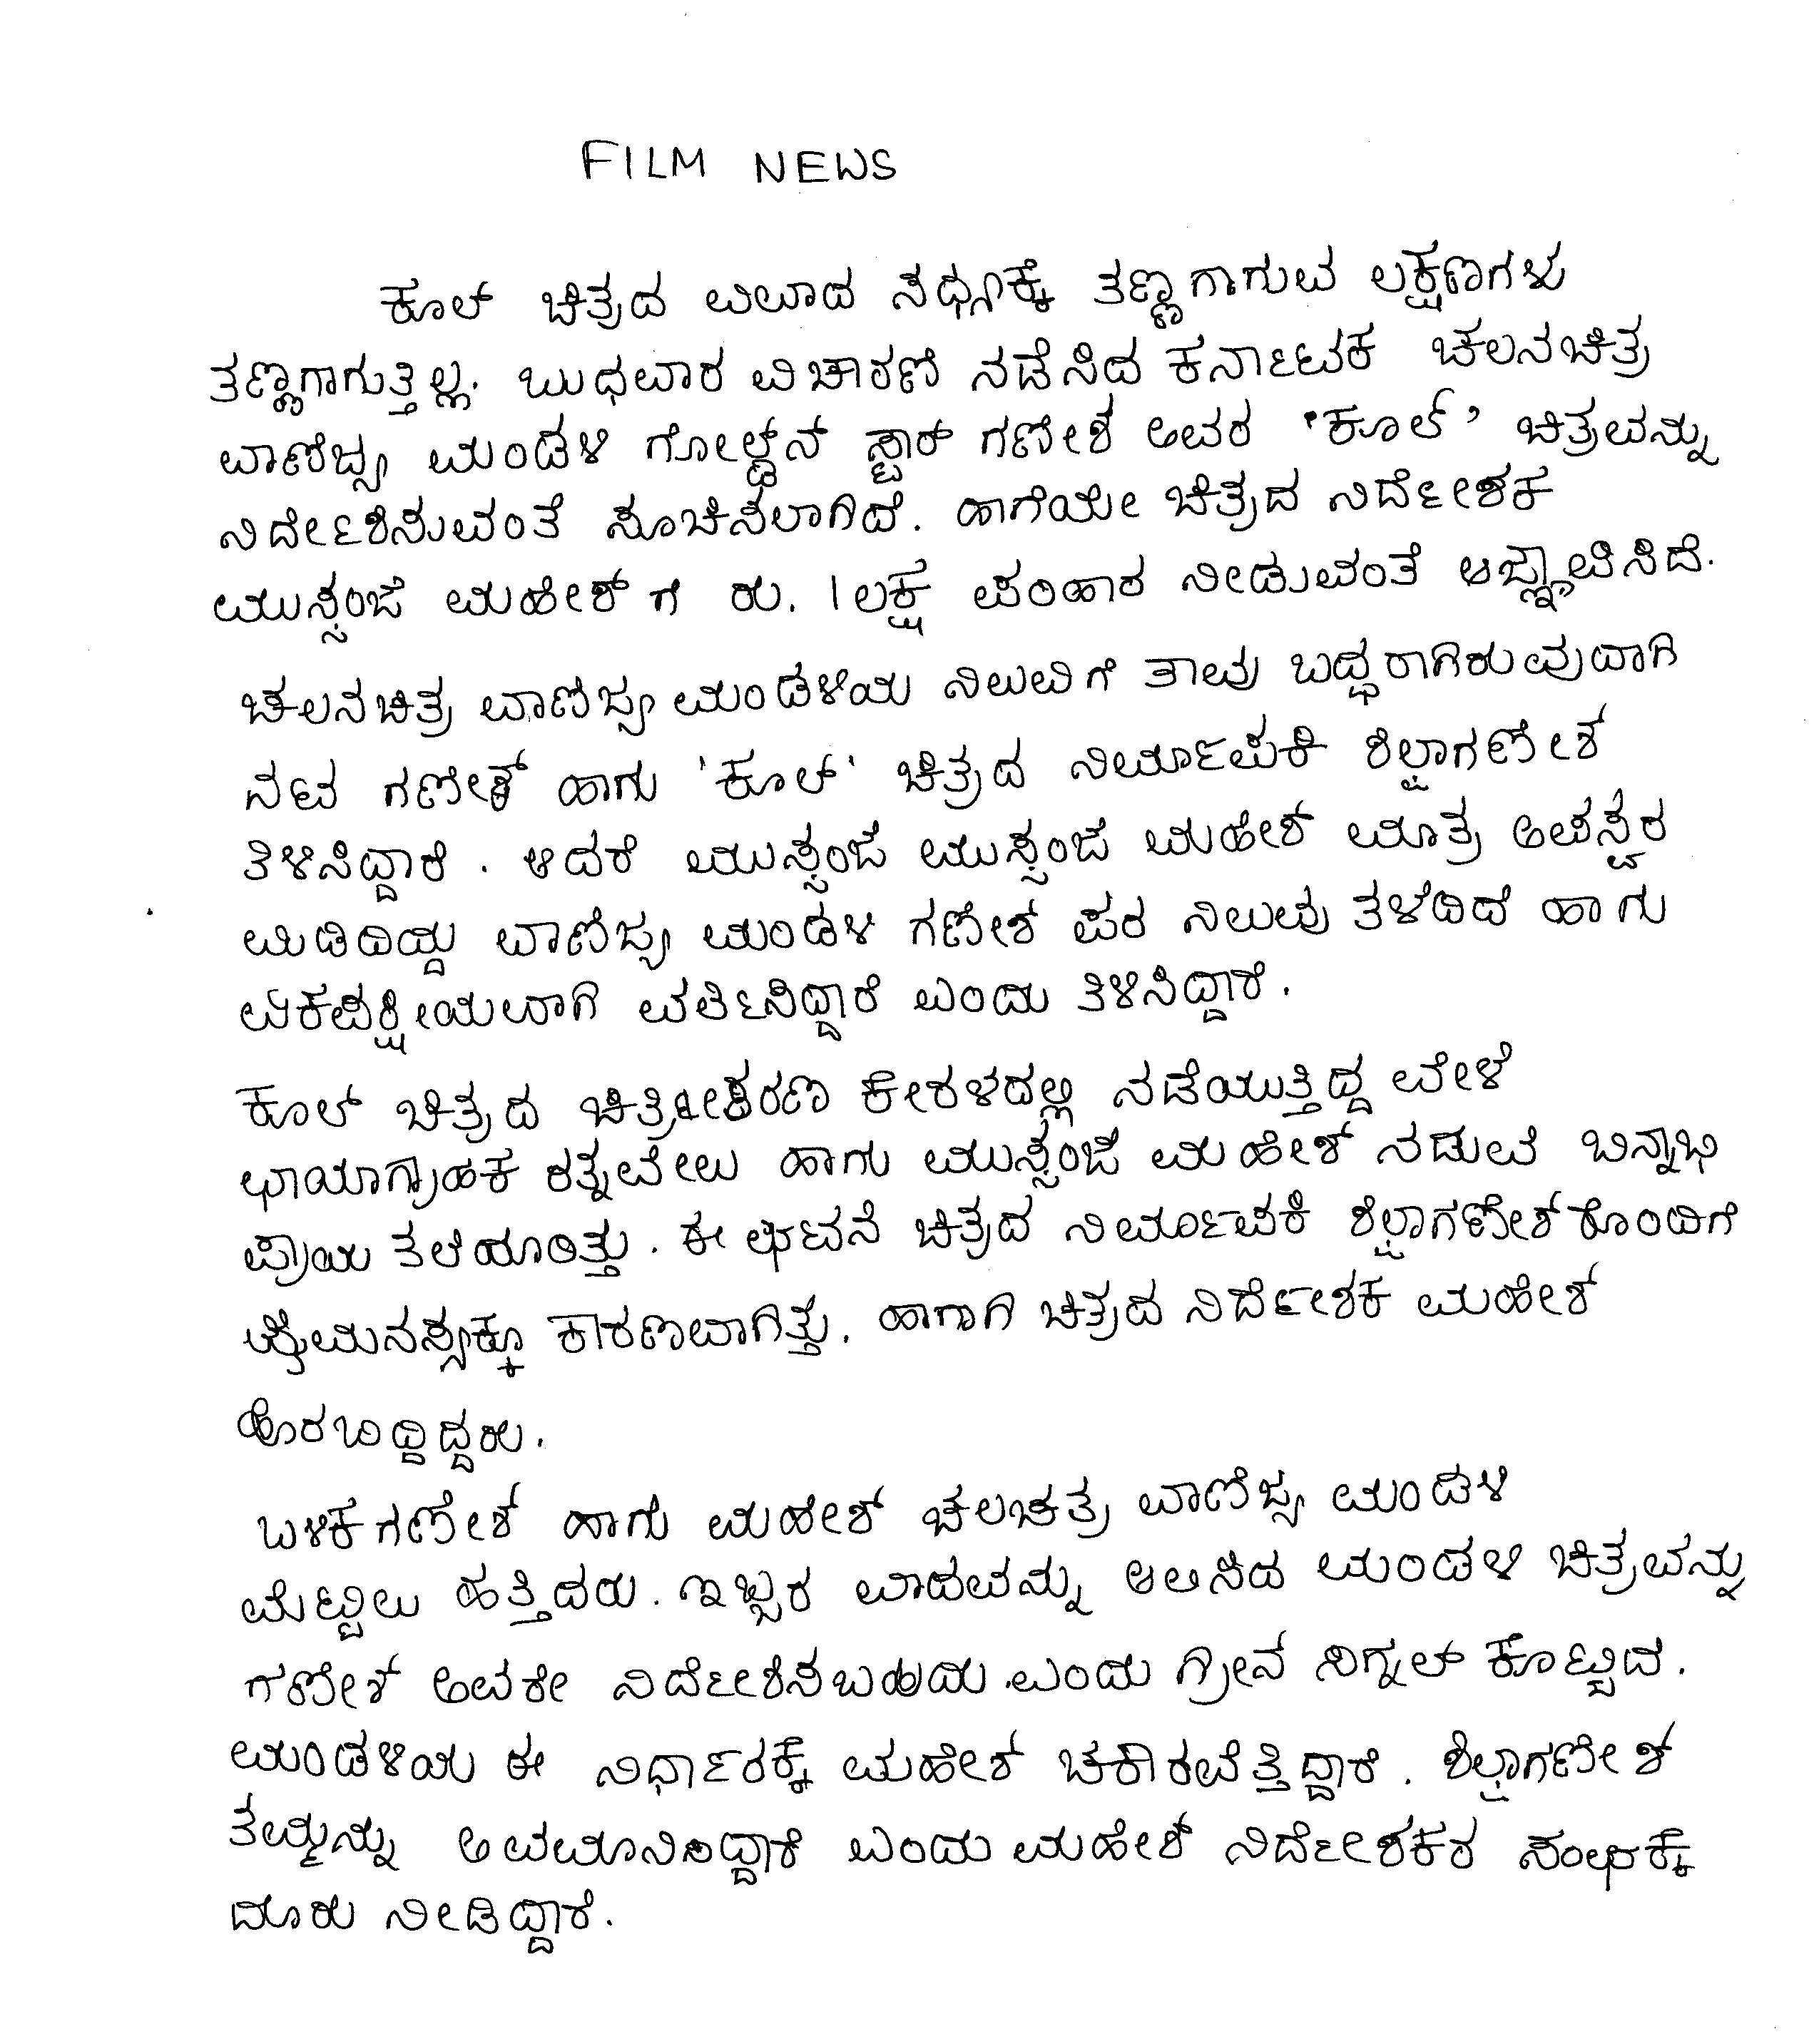 FILM NEWS
ಕೂಲ್ ಚಿತ್ರದ ವಿವಾದ ಸಧ್ಯಕ್ಕೆ ತಣ್ಣಗಾಗುವ ಲಕ್ಷಣಗಳು
ತಣ್ಣಗಾಗುತ್ತಿಲ್ಲ. ಬುಧವಾರ ವಿಚಾರಣೆ ನಡೆಸಿದ ಕರ್ನಾಟಕ ಚಲನಚಿತ್ರ
ವಾಣಿಜ್ಯ ಮಂಡಳಿ ಗೋಲ್ಡನ್ ಸ್ಟಾರ್ ಗಣೇಶ್ ಅವರ 'ಕೂಲ್' ಚಿತ್ರವನ್ನು
ನಿರ್ದೇಶಿಸುವಂತೆ ಸೂಚಿಸಲಾಗಿದೆ. ಹಾಗೆಯೇ ಚಿತ್ರದ ನಿರ್ದೇಶಕ
ಮುಸ್ಸಂಜೆ ಮಹೇಶ್ ಗೆ ರು. 1 ಲಕ್ಷ ಪರಿಹಾರ ನೀಡುವಂತೆ ಆಜ್ಞಾಪಿಸಿದೆ.
ಚಲನಚಿತ್ರ ವಾಣಿಜ್ಯ ಮಂಡಳಿಯ ನಿಲುವಿಗೆ ತಾವು ಬದ್ಧರಾಗಿರುವುದಾಗಿ
ನಟ ಗಣೇಶ್ ಹಾಗು 'ಕೂಲ್' ಚಿತ್ರದ ನಿರ್ಮಾಪಕಿ ಶಿಲ್ಪಾಗಣೇಶ್
ತಿಳಿಸಿದ್ದಾರೆ. ಆದರೆ ಮುಸ್ಸಂಜೆ ಮುಸ್ಸಂಜೆ ಮಹೇಶ್ ಮಾತ್ರ ಅಪಸ್ವರ
ಮಿಡಿದಿದ್ದು ವಾಣಿಜ್ಯ ಮಂಡಳಿ ಗಣೇಶ್ ಪರ ನಿಲುವು ತಳೆದಿದೆ ಹಾಗು
ಏಕಪಕ್ಷೀಯವಾಗಿ ವರ್ತಿಸಿದ್ದಾರೆ ಎಂದು ತಿಳಿಸಿದ್ದಾರೆ.
ಕೂಲ್ ಚಿತ್ರದ ಚಿತ್ರೀಕರಣ ಕೇರಳದಲ್ಲಿ ನಡೆಯುತ್ತಿದ್ದ ವೇಳೆ
ಛಾಯಾಗ್ರಾಹಕ ರತ್ನವೇಲು ಹಾಗು ಮುಸ್ಸಂಜೆ ಮಹೇಶ್ ನಡುವೆ ಬಿನ್ನಾಭಿ
ಪ್ರಾಯ ತಲೆದೂರಿತ್ತು. ಈ ಘಟನೆ ಚಿತ್ರದ ನಿರ್ಮಾಪಕಿ ಶಿಲ್ಪಾಗಣೇಶ್ ರೊಂದಿಗೆ
ವೈಮನಸ್ಯಕ್ಕೂ ಕಾರಣವಾಗಿತ್ತು. ಹಾಗಾಗಿ ಚಿತ್ರದ ನಿರ್ದೇಶಕ ಮಹೇಶ್
ಹೊರಬಿದ್ದಿದ್ದರು.
ಬಳಿಕ ಗಣೇಶ್ ಹಾಗು ಮಹೇಶ್ ಚಲಚಿತ್ರ ವಾಣಿಜ್ಯ ಮಂಡಳಿ
ಮೆಟ್ಟಿಲು ಹತ್ತಿದರು. ಇಬ್ಬರ ವಾದವನ್ನು ಆಲಿಸಿದ ಮಂಡಳಿ ಚಿತ್ರವನ್ನು
ಗಣೇಶ್ ಅವರೇ ನಿರ್ದೇಶಿಸಬಹುದು ಎಂದು ಗ್ರೀನ್ ಸಿಗ್ನಲ್ ಕೊಟ್ಟಿದೆ.
ಮಂಡಳಿಯ ಈ ನಿರ್ಧಾರಕ್ಕೆ ಮಹೇಶ್ ಚಕಾರವೆತ್ತಿದ್ದಾರೆ. ಶಿಲ್ಪಾಗಣೇಶ್
ತಮ್ಮನ್ನು ಅವಮಾನಿಸಿದ್ದಾರೆ ಎಂದು ಮಹೇಶ್ ನಿರ್ದೇಶಕರ ಸಂಘಕ್ಕೆ
ದೂರು ನೀಡಿದ್ದಾರೆ.